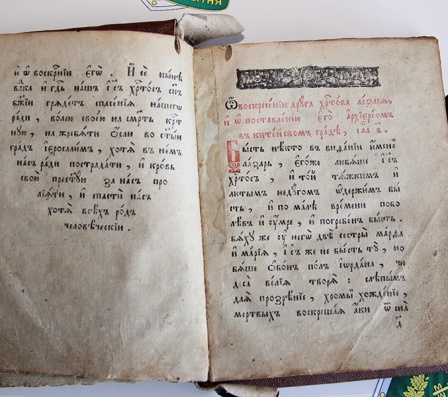 и ѿ воскр҃нїи єгѡ̀. И сѐ нн҃ѣ
гд҃ь нашъ і҆с хрⷭ҇тосъ
бж҃їи грядетъ спасенїѧ нашегѡ
ради, волею своею на смерть крⷭ҇т
ную, на жребѧти
градъ іеросалимъ, хотѧ в нем
насъ ради пострадати, и кровь
свою за насъ про
лїѧти, и спасти
хотѧ всѣхъ родъ
человѣческїи.
Ѡ воскресенїи друга хрⷭ҇това лазарѧ,
и ѿ поставленїи его архїерїомъ
в китейскомъ градѣ,
Бысть нѣкто в виѳанїи именемъ
лазарь, єгоже любѧше і҆с
хрⷭ҇тосъ, и той тѧжкимъ и
лютымъ недугомъ ѡдержимъ бы
сть, и по малѣ времени побо
лѣвъ и умре, и погребенъ бысть.
бѧху же у негѡ двѣ сестры марѳа
и марїѧ, і҆с же не бысть ту, но
бѧше ѡбонъ полъ їѡрдана, чю
деса велїѧ творѧ: слѣпымъ
даѧ прозрѣнїе, хромы хожденїе,
мертвыхъ воскрешаѧ аки ѿ сна